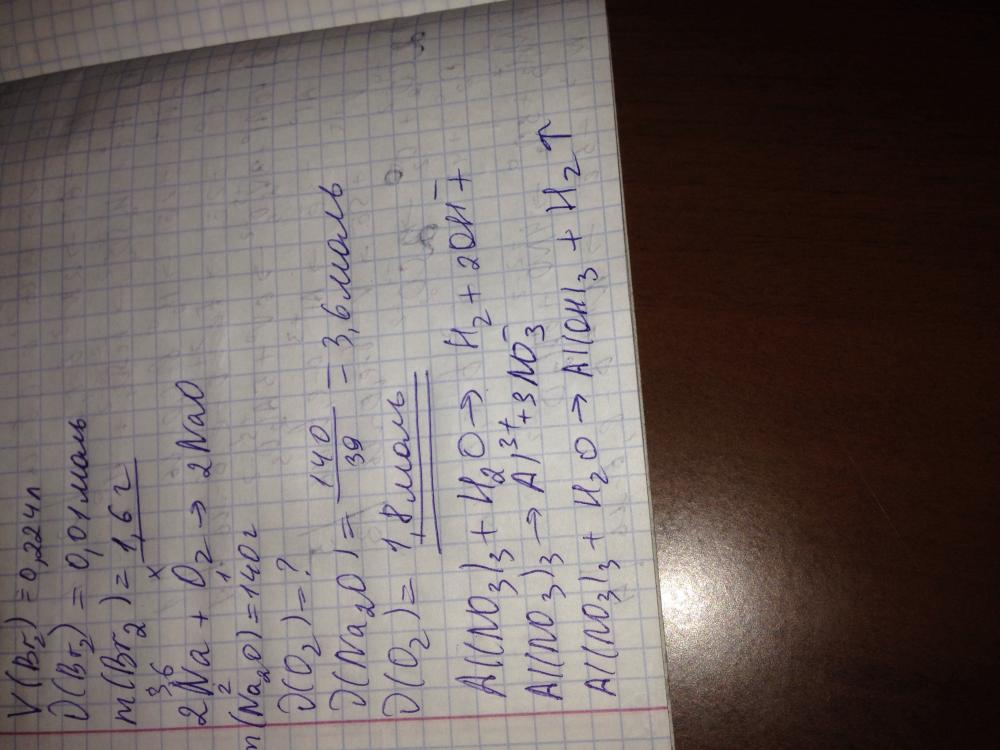 V(Br₂) = 0,224л
ν(Br₂) = 0,01 моль
m(Br₂) = 1,6 г
3,6 x
2Na + O₂ → 2NaO
2 1
m(Na₂O) = 140г
ν(O₂) = ?
ν(Na₂O) = 140/39 = 3,6 моль
ν(O₂) = 1,8 моль
Al(NO₃)₃ + H₂O → H₂ + 2OH⁻ +
Al(NO₃)₃ → Al³⁺ + 3NO₃⁻
Al(NO₃)₃ + H₂O → Al(OH)₃ + H₂↑